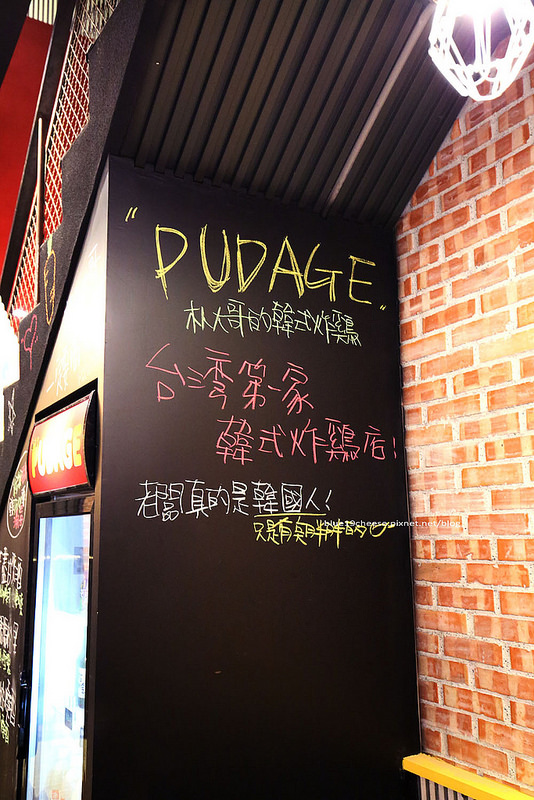 "PUDAGE"
朴大哥的韓式炸雞
台灣第一家
韓式炸雞店!
老闆真的是韓國人!
只是有臭胖胖的
blue19cheese.pixnet.net/blog
PUDAGE